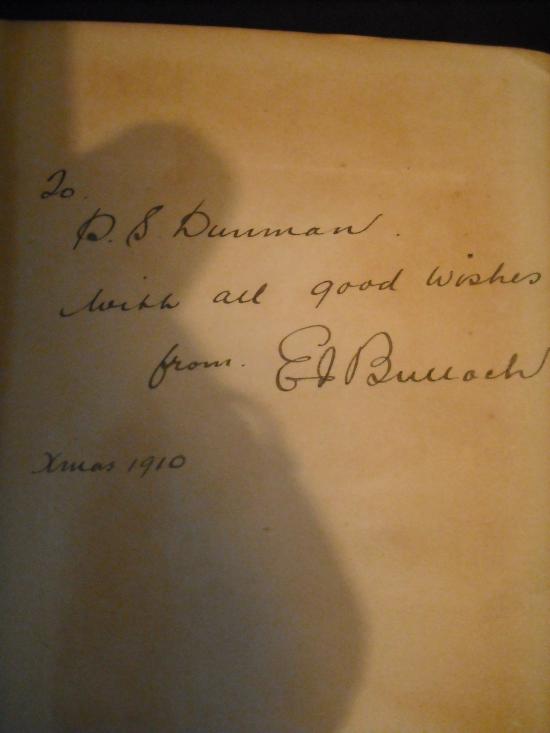 To.
D. S. Dunman.
With all good Wishes
from. EJ Bulloch
Xmas 1910